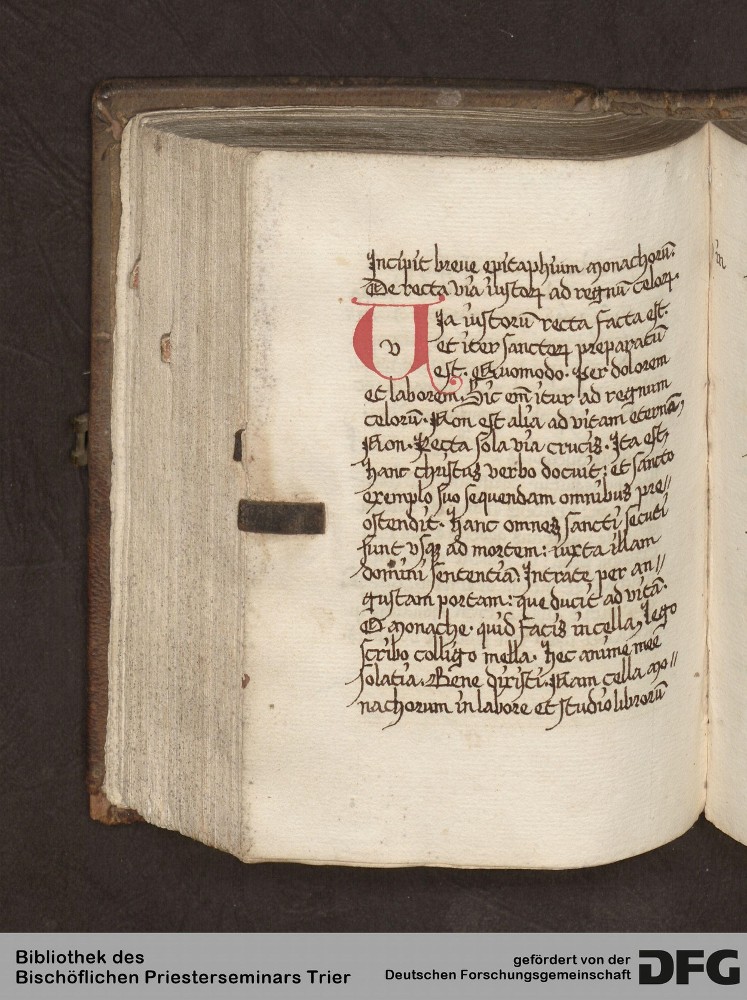 Incipit breue epitaphium monachorū.
De recta via iustorꝝ ad regnū celorꝝ.
Uia iustorū recta facta est.
v et iter sanctorꝝ preparatū
est. Quomodo. Per dolorem
et laborem. Sic em̄ itur ad regnum
celorū. Non est alia ad vitam eternā,
Non. Recta sola via crucis. Ita est,
hanc christus verbo docuit: et sancto
exemplo suo sequendam omnibus pre//
ostendit. hanc omnes sancti secuti
sunt vsqꝫ ad mortem: iuxta illam
domini sententiā. Intrate per an//
gustam portam: que ducit ad vitā.
O monache. quid facis in cella, lego
scribo colligo mella. hec anime mee
solatia. Bene dixisti. Nam cella mo//
nachorum in labore et studio librorū
in
Bibliothek des
Bischöflichen Priesterseminars Trier
gefördert von der
Deutschen Forschungsgemeinschaft
DFG